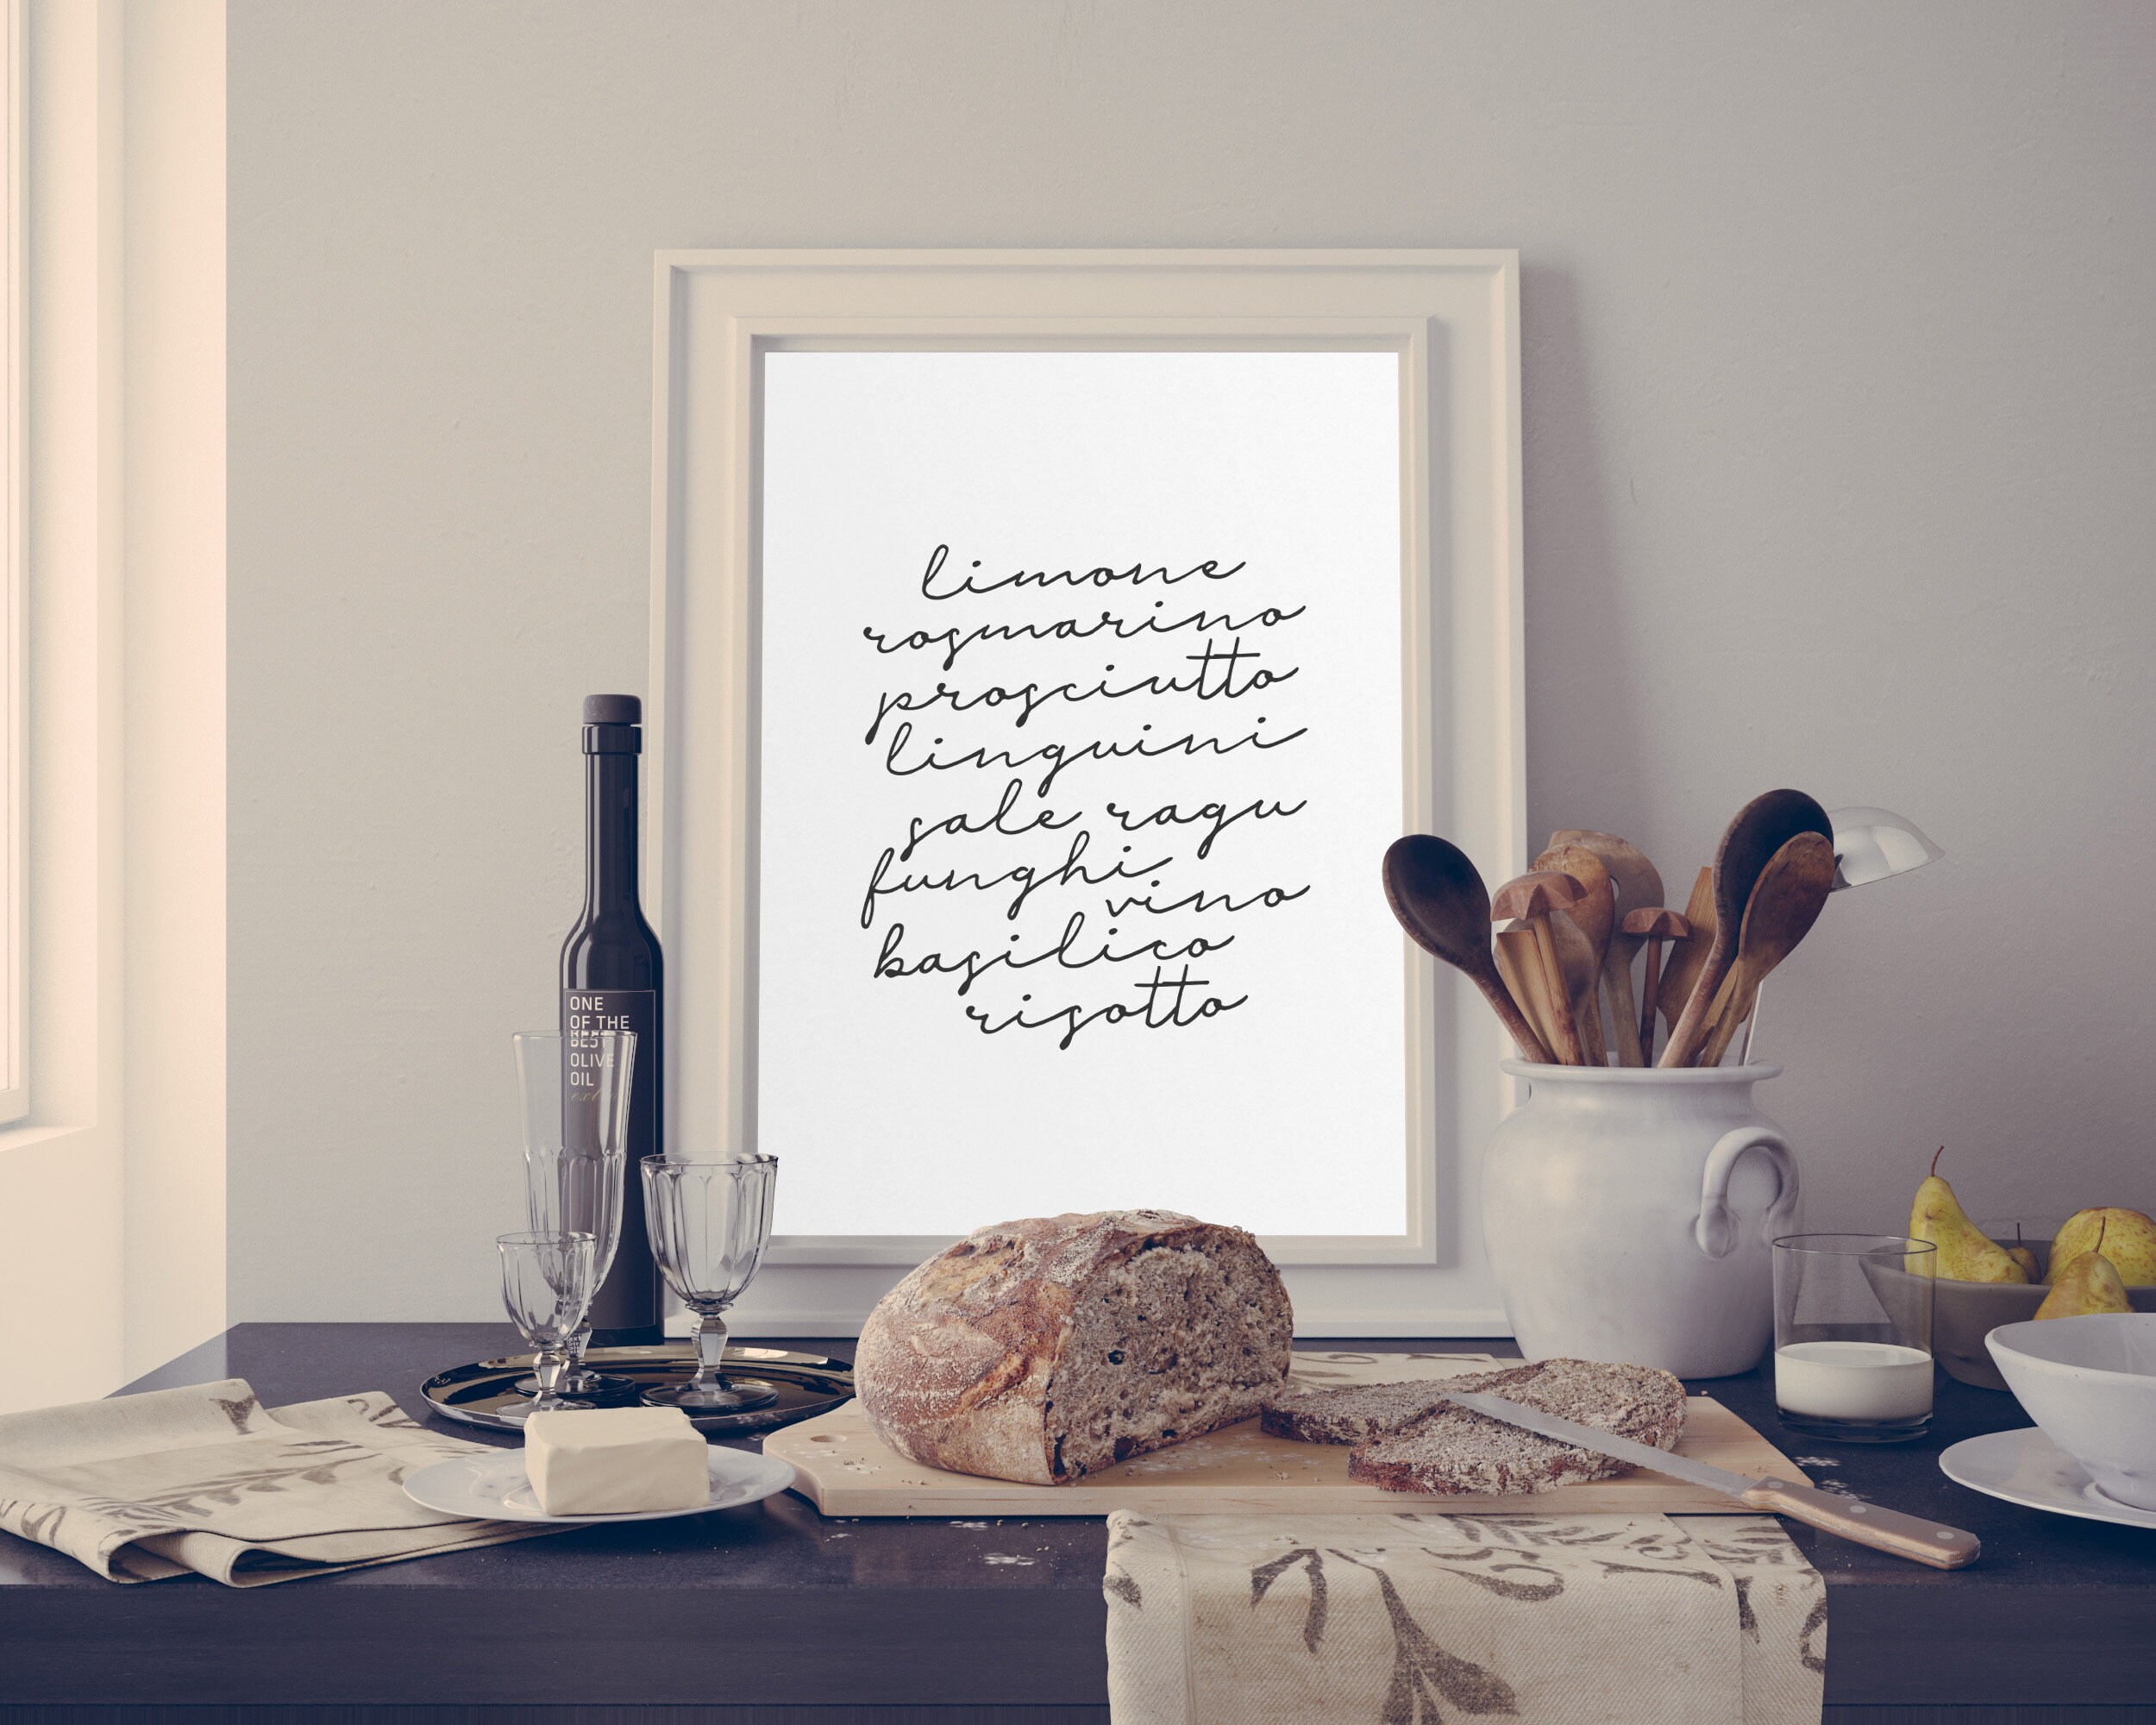 limone
rosmarino
prosciutto
linguini
sale ragu
funghi
vino
basilico
risotto
ONE
OF THE
BEST
OLIVE
OIL